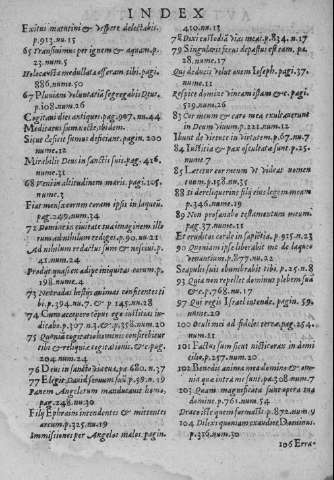 INDEX
Exitus matutini & vespere delectabis.
p.913.nu.15
65 Transiuimus per ignem & aquam.p.
23.num.5
Holocausta medullata offeram tibi.pagi.
886.nume.50
67 Pluuiam voluntariā segregabis Deus.
p.108.num.26
Cogitaui dies antiquos.pag.907.nu.44
Meditatus sum nocte.ibidem.
Sicut deficit fumus deficiant.pag.200
nume.12
Mirabilis Deus in sanctis suis.pag.426.
nume.31
68 Veni in altitudinem maris.pag.105.
nume.3
Fiat mensa eorum coram ipsis in laqueū.
pag.249.num.34
72 Domine in ciuitate tua imaginem illorum
ad nihilum rediges.p.90.nu.21
Ad nihilum redactus sum & nesciui.p.
41.num.24
Prodijt quasi ex adipe iniquitas eorum.p.
198.nume.4
73 Ne tradas bestijs animas confitentes tibi.
p.394.nu.7.& p 145.nu.28
74 Cum accepero tempus ego iustitias iudicabo.
p.307.n.3.& p.358.num.20
75 Quoniā cogitatio hominis confitebitur
tibi & reliquiæ cogitationis.&c.pag.
204.num.24
76 Deus in sancto via tua.pa.680.n.37
77 Elegit Dauid seruum suū p.39.n.19
Panem Angelorum manducauit homo.
pag.248.nu.30
Filij Ephraim intendentes & mittentes
arcum.p.325.nu.19
Immissiones per Angelos malos.pagin.
410.nu.13
78 Duxi custodiā vias meas.p.834.n.17
79 Singularis ferus depastus est eam.pa.
28.nume.17
Qui deducis velut ouem Ioseph.pagi.37.
nume.11
Respice domine vineam istam & c.pagi.
519.num.26
83 Cor meum & caro mea exultauerunt
in Deum viuum.p.221.num.12
Ibunt de virtute in virtutem.p.67.nu.7
84 Iustitia & pax osculatæ sunt.p.25.
nume 7
85 Lætetur cor meum vt videas nomen
tuum.p.158.nu.35
88 Si dereliquerint filij eius legem meam
p.346.nume.19
89 Non prosanabo testamentum meum.
pag.37.nume.11
Et eruditos corde in sapiētia.p.915.n.23
90 Quoniam ipse liberabit me de laqueo
venantium.p.877.nu.22
Scapulis suis obumbrabit tibi.p.25.n.8
93 Quia non repellet dominus plebem suā
& c.p.768.nu.17
97 Qui regis Israel intende.pagin.59.
nume.20
100 Oculi mei ad fideles terræ.pag.254.
num.21
101 Factus sum sicut nicticorax in domicilio.
p.257.num.20
102 Benedic anima mea domino & omnia
qua intra me sunt.pa.308.num.7
103 Quam magnificata sunt opera tua
domine.p.761.num.54
Draco iste quem formasti.p.872.num.9
104 Dilexi quoniam exaudiet Dominus.
p.316.num.30
106 Erra-